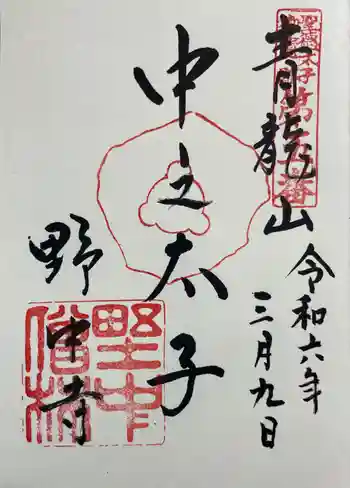 青龍山
令和六年
三月九日
中之太子
野中寺
野中
僧坊